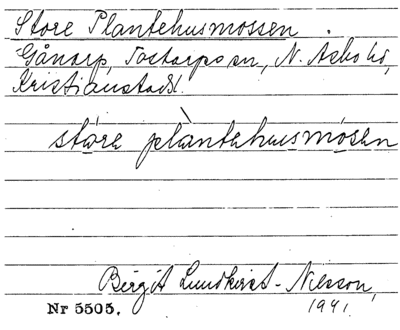 Store Plantehusmossen
Gånarp, Tåstarps sn, N. Åsbo hd,
Kristianstads l.
stóre plàntehusmósen
Birgit Lundkvist-Nilsson,
Nr 5505. 1941.